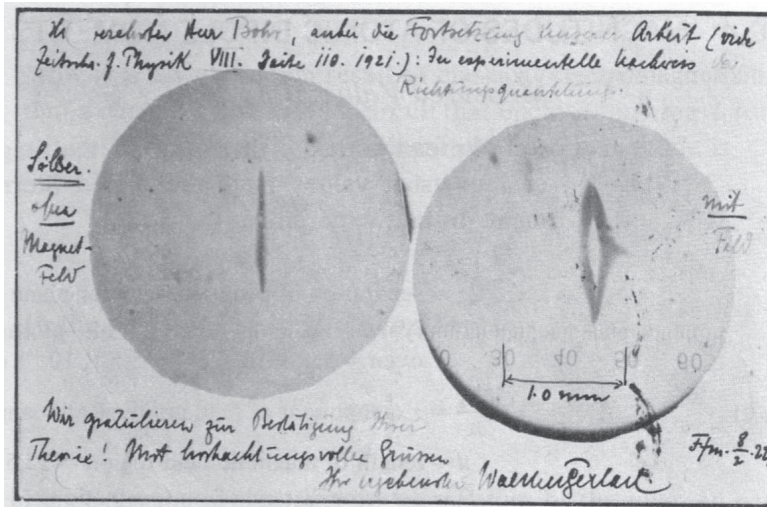 Hochverehrter Herr Bohr, anbei die Fortsetzung unserer Arbeit (vide
Zeitschr. f. Physik VIII. Seite 110. 1921.): Der experimentelle Nachweis der
Richtungsquantelung.
Silber
ohne
Magnet-
Feld
mit
Feld
0 30 40 50 60
1.0 mm
Wir gratulieren zur Bestätigung Ihrer
Theorie! Mit hochachtungsvollen Grüssen
Ihr ergebenster Walther Gerlach
F/m. 8/2. 22